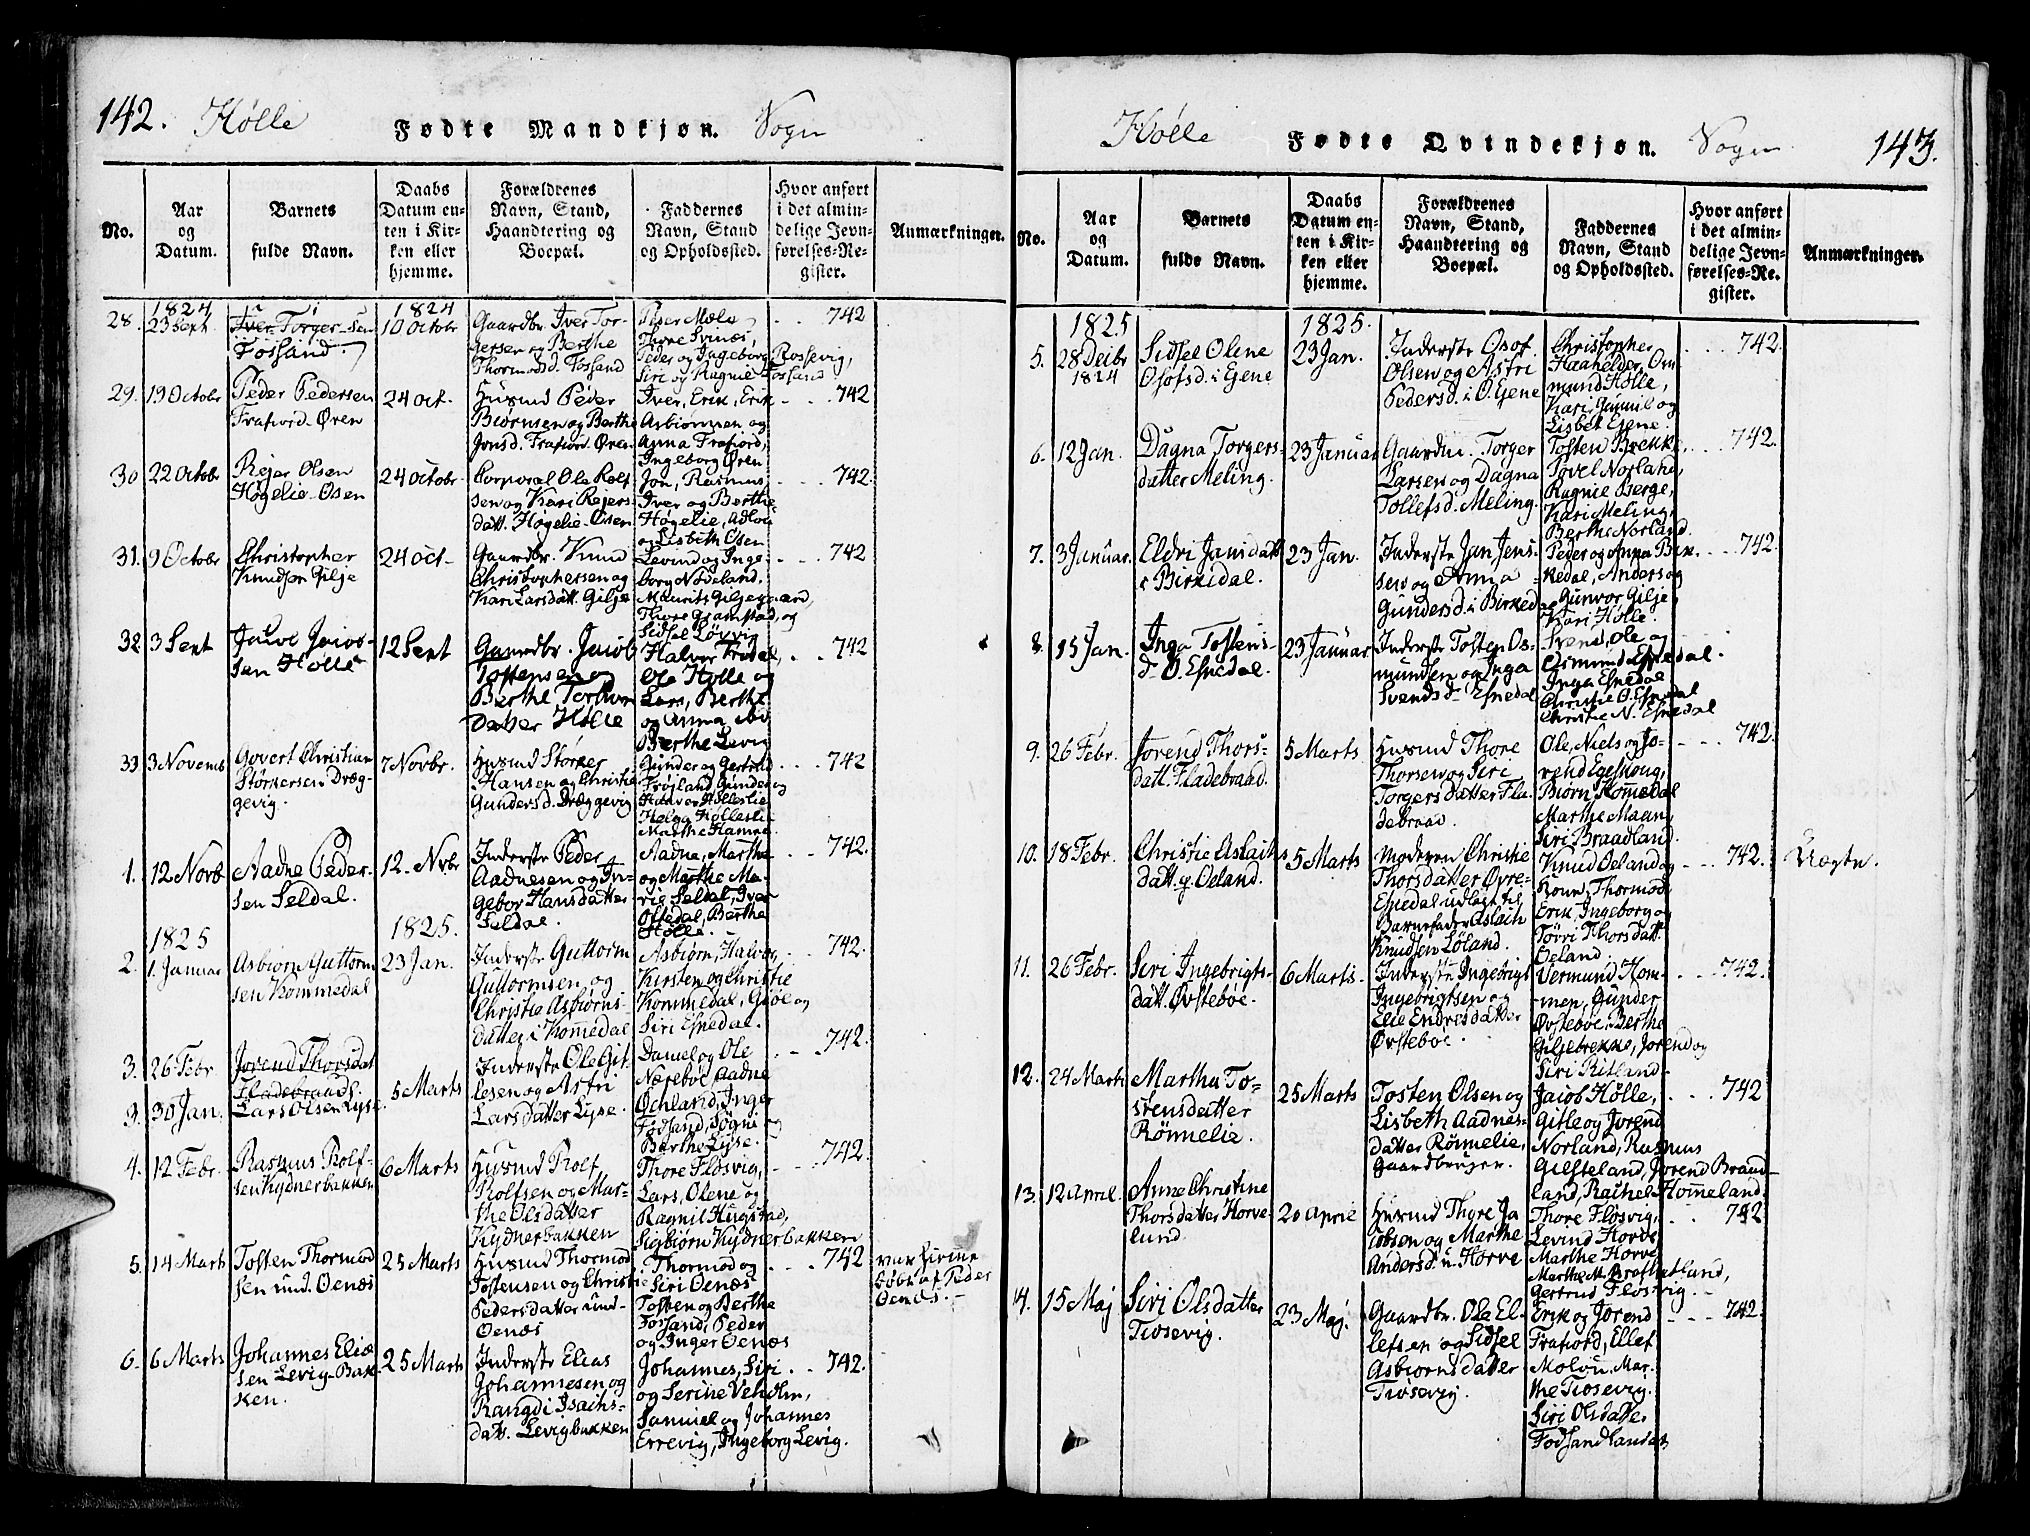 142. Hølle Fødte Mandkjøn. Sogn
No.
Aar
og
Datum.
Barnets
fulde Navn.
Daabs
Datum en-
ten i Kir-
ken eller
hjemme.
Forældrenes
Navn, Stand,
Haandtering og
Boepæl.
Faddernes
Navn, Stand
og Opholdssted.
Hvor anført
i det almin-
delige Jevn-
førelses-Re-
gister.
Anmærkninger.
28.
1824
23 Sept.
Iver Torger-sen
Fossand.
1824
10 Octobr
Gaardbr. Iver Tor-
gersen og Berthe
Thormodsd. Fossand
Peer Mæle,
Thore Svinæs,
Peder og Ingeborg Rossevig,
Siri og Ragnie Fossand
742
29.
19 Octobr
Peder Pedersen
Frafiord-Øren
24 oct.
Husmd Peder
Biørnsen og Berthe
Jonsd. Frafiord-Øren
Iver, Erik, Erik
Asbiørnsen og
Anna Frafiord,
Ingeborg Øren
742
30
22 Octobr
Rejer Olsen
Høgelie-Øsen
24 octobr
Corporal Ole Rolf
sen og Kari Rejers-
datt. Høgelie-Øsen
Jon, Rasmus,
Iver og Berthe
Høgelie,
og Lisbeth Øsen
742.
31.
9 Octobr
Christopher
Knudsen Gilje
24 oct.
Gaardbr. Knud
Christophersen og
Kari Larsdatt. Gilje
Levind og Inge-
borg Nødeland,
Maurits Giljegaard,
Thore Gramstad, og
Sidsel Løvvig
742
32
3 Sept
Jacob Jacob-
sen Hølle
12 Sept
Gaardbr. Jacob
Tostensen og
Berthe Torbiørns
Datter Hølle
Halvor Fredal,
Ole Hølle og
Lars, Berthe
og Anna
Berthe Levig
742
33
3 Novemb
Govert Christian
Størkersen Dræg-
gevig.
7 Novbr.
Husmd Størker
Hansen og Christie
Gundersd. Dræggevig
Gunder og Gertrud
Frøjland, Gunder og
HaaverØlleslie
Helga Hølleslie
Marthe Hamne
742
1.
12 Novb
Aadne Peder-
sen Seldal.
12. Nvbr
Inderste Peder
Aadnesen og In-
gebor Hansdatter
Seldal.
Aadne, Marthe
og Marthe Ma-
rie Seldal, Iver
Oftedal, Berthe
Hølle.
742.
2.
1825
1. Januar
Asbiørn Guttorm
sen Kommedal
1825.
23 Jan.
Inderste Guttorm
Guttormsen og
Christie Asbiørns-
datter i Kom̅edal
Asbiørn, Halvor,
Kirsten og Christie
Kommedal, Giøe og
Siri Esnedal.
742.
3.
26 Febr
Jorend Thorsdat
Fladebraads.
3.
30 Jan.
Lars Olsen Lyse.
5 Marts
Inderste Ole Git-
lesen og Astri
Larsdatter Lyse.
Daniel og Ole
Nærebøe, Aadne
Øchland, Inger
Fossand, Søgni og
Berthe Lyse.
742.
4.
12 Febr.
Rasmus Rolf-
sen Kydnerbakken
6 Marts
Husmd Rolf
Rolfsen og Mar-
the Olsdatter
Kydnerbakken
Thore Fløsvig,
Lars, Olene og
Ragnil Hugstad,
Sigbiørn Kydnerbakken
742.
5.
14 Marts
Tosten Thormod
sen und. Oenæs
25 Marts
Husmd Thormod
Tostensen og Christie
Pedersdatter und-
Oenæs
Thormod og
Siri Oenæs
Tosten og Berthe
Fossand, Peder
og Inger Oenæs
742
var hjemme
døbt af Peder
Oenæs.
6.
6 Marts
Johannes Eliæ
sen Levig-Bak-
ken.
25 Marts
Inderste Elias
Johannesen og
Rangdi Isachs-
datt. Levigbakken
Johannes, Siri
og Serine Veholm,
Samuel og Johannes
Errevig, Ingeborg Levig.
742.
Hølle Fødte Qvindekjøn. Sogn 143.
No.
Aar
og
Datum.
Barnets
fulde Navn.
Daabs
Datum en-
ten i Kir-
ken eller
hjemme.
Forældrenes
Navn, Stand,
Haandtering og
Boepæl.
Faddernes
Navn, Stand
og Opholdssted.
Hvor anført
i det almin-
delige Jevn-
førelses-Re-
gister.
Anmærkninger.
5.
1825
28 Decbr
1824
Sidsel Olene
Osofsd. i Ejene
1825.
23 Jan.
Inderste Osof
Olsen og Astri
Pedersd. i Ø. Ejene
Christopher
Haahelder, Os-
mund Hølle,
Kari, Gunnil og
Lisbet Ejene.
742.
6.
12 Jan.
Dagna Torgers-
datter Meling.
23 Januar
Gaardm. Torger
Larsen og Dagna
Tollefsd. Meling.
Tosten Brekke,
Tovel Norland,
Ragnie Berge,
Kari Meling,
Berthe Norland.
742.
7.
3 Januar.
Eldri Jansdatt.
i Birkedal.
23 Jan.
Inderste Jan Jens-
sen og Anna
Gundersd. i Birkedal
Peder og Anna Bir-
kedal, Anders og
Gunvor Gilje,
Kari Hølle.
742.
8.
15 Jan.
Inga Tostens
dr Ø. Esnedal.
23 Januar
Inderste Tosten Os-
mundsen og Inga
Svendsdr Esnedal
Svend, Ole og
Osmund Esnedal.
Inga Esnedal
Christie Ø. Esnedal
Christie N. Esnedal
9.
26 Febr.
Jorend Thors-
datt. Fladebraad.
5 Marts
Husmd Thore
Thorsen og Siri
Torgersdatter Fla-
debraad.
Ole, Niels og Jo-
rend Egeskoug,
Biørn Kom̅edal
Marthe Maan,
Siri Braadland.
742.
10.
18 Febr.
Christie Aslachs
datt. y. Oeland.
5 Marts
Moderen Christie
Thorsdatter Øvre-
Esnedal udlagt til
Barnefader Aslach
Knudsen Løland.
Knud Oeland og
Kone, Thormod,
Erik, Ingeborg og
Tørri Thorsdatt.
Oeland.
742.
Uægte.
11.
26 Febr.
Siri Ingebrigts-
datt. Østebøe.
6 Marts.
Inderste Ingebrigt
Ingebrigtsen og
Elie Endresdatter
Østebøe.
Vermund Hom-
men, Gunder
Østebøe, Berthe
Giljebrekke, Jorend og
Siri Ritland.
742.
12.
24 Marts
Martha To-
stensdatter
Rønnelie.
25 Marts
Tosten Olsen og
Lisbeth Aadnes-
datter Rønnelie,
Gaardbruger.
Jacob Hølle,
Gitle og Jorend
Norland, Rasmus
Gilsteland, Jorend Braad-
land, Rachel Hom̅eland.
742
13.
12 April.
Anne Christine
Thorsdatter Horve-
lund.
20 April
Husmd Thore Ja
cobsen og Marthe
Andersd. u. Horve
Thore Fløsvig,
Levind Horve
Marthe Horve
Marthe M. Kroftetland,
Gertrud Fløsvig.
742
14.
15 Maj
Siri Olsdatter
Tiøsevig.
23 Maj.
Gaardbr. Ole El-
lefsen og Sidsel
Asbiørnsdatter
Tiøsevig.
Erik og Jorend
Frafiord, Ellef
Molvu, Mar-
the Tiøsevig.
Siri Olsdatter
Fossandlandet
742.